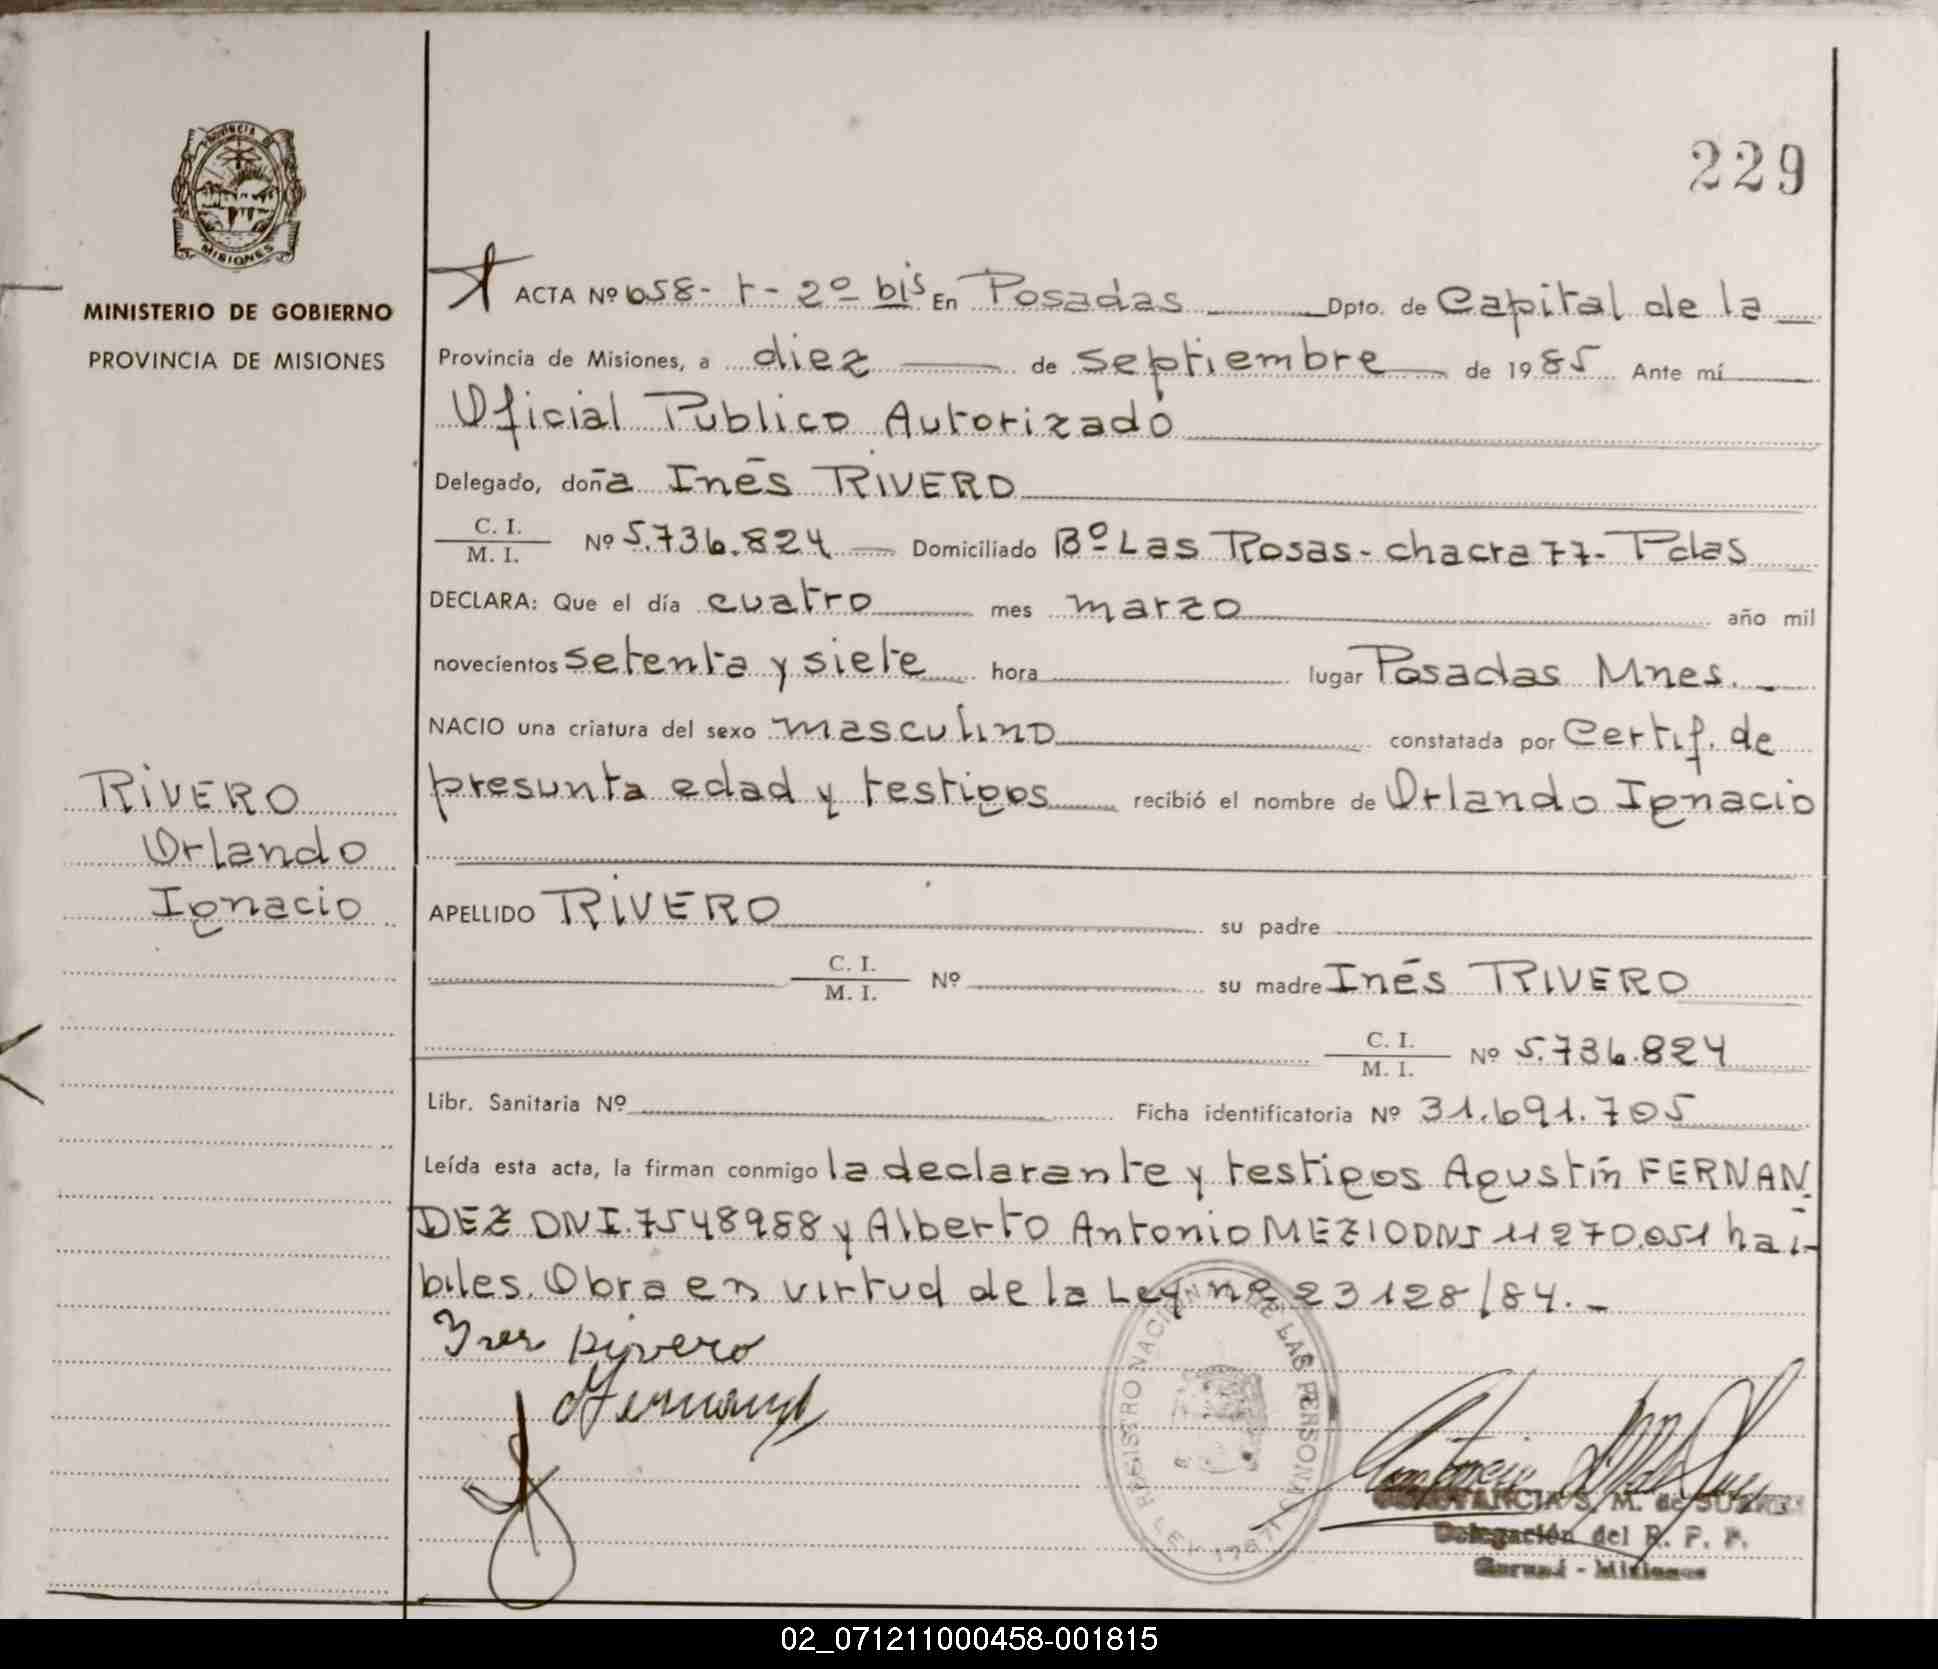 229
PROVINCIA DE
MISIONES
MINISTERIO DE GOBIERNO
PROVINCIA DE MISIONES
ACTA Nº 658- t- 2º bis En Posadas Dpto. de Capital de la
Provincia de Misiones, a diez de septiembre de 1985 Ante mí
Oficial Publico Autorizado
Delegado, doña Inés RIVERO
C. I.
M. I. Nº 5.736.824 Domiciliado Bº Las Rosas- chacra 77- Pdas
DECLARA: Que el día cuatro mes marzo año mil
novecientos setenta y siete hora lugar Posadas Mnes.
NACIO una criatura del sexo masculino constatada por Certif. de
presunta edad y testigos recibió el nombre de Orlando Ignacio
RIVERO
Orlando
Ignacio
APELLIDO RIVERO su padre
C. I.
M. I. Nº su madre Inés RIVERO
C. I.
M. I. Nº 5.736.824
Libr. Sanitaria Nº Ficha identificatoria Nº 31.691.705
Leída esta acta, la firman conmigo la declarante y testigos Agustín FERNAN
DEZ DNI. 7548988 y Alberto Antonio MEZIO DNI 11270.051 há-
biles. Obra en virtud de la Ley nº 23128/84.-
Ines Rivero
REGISTRO NACIONAL DE LAS PERSONAS
S. M. de
Delegación del R. P. P.
- Misiones
02_071211000458-001815